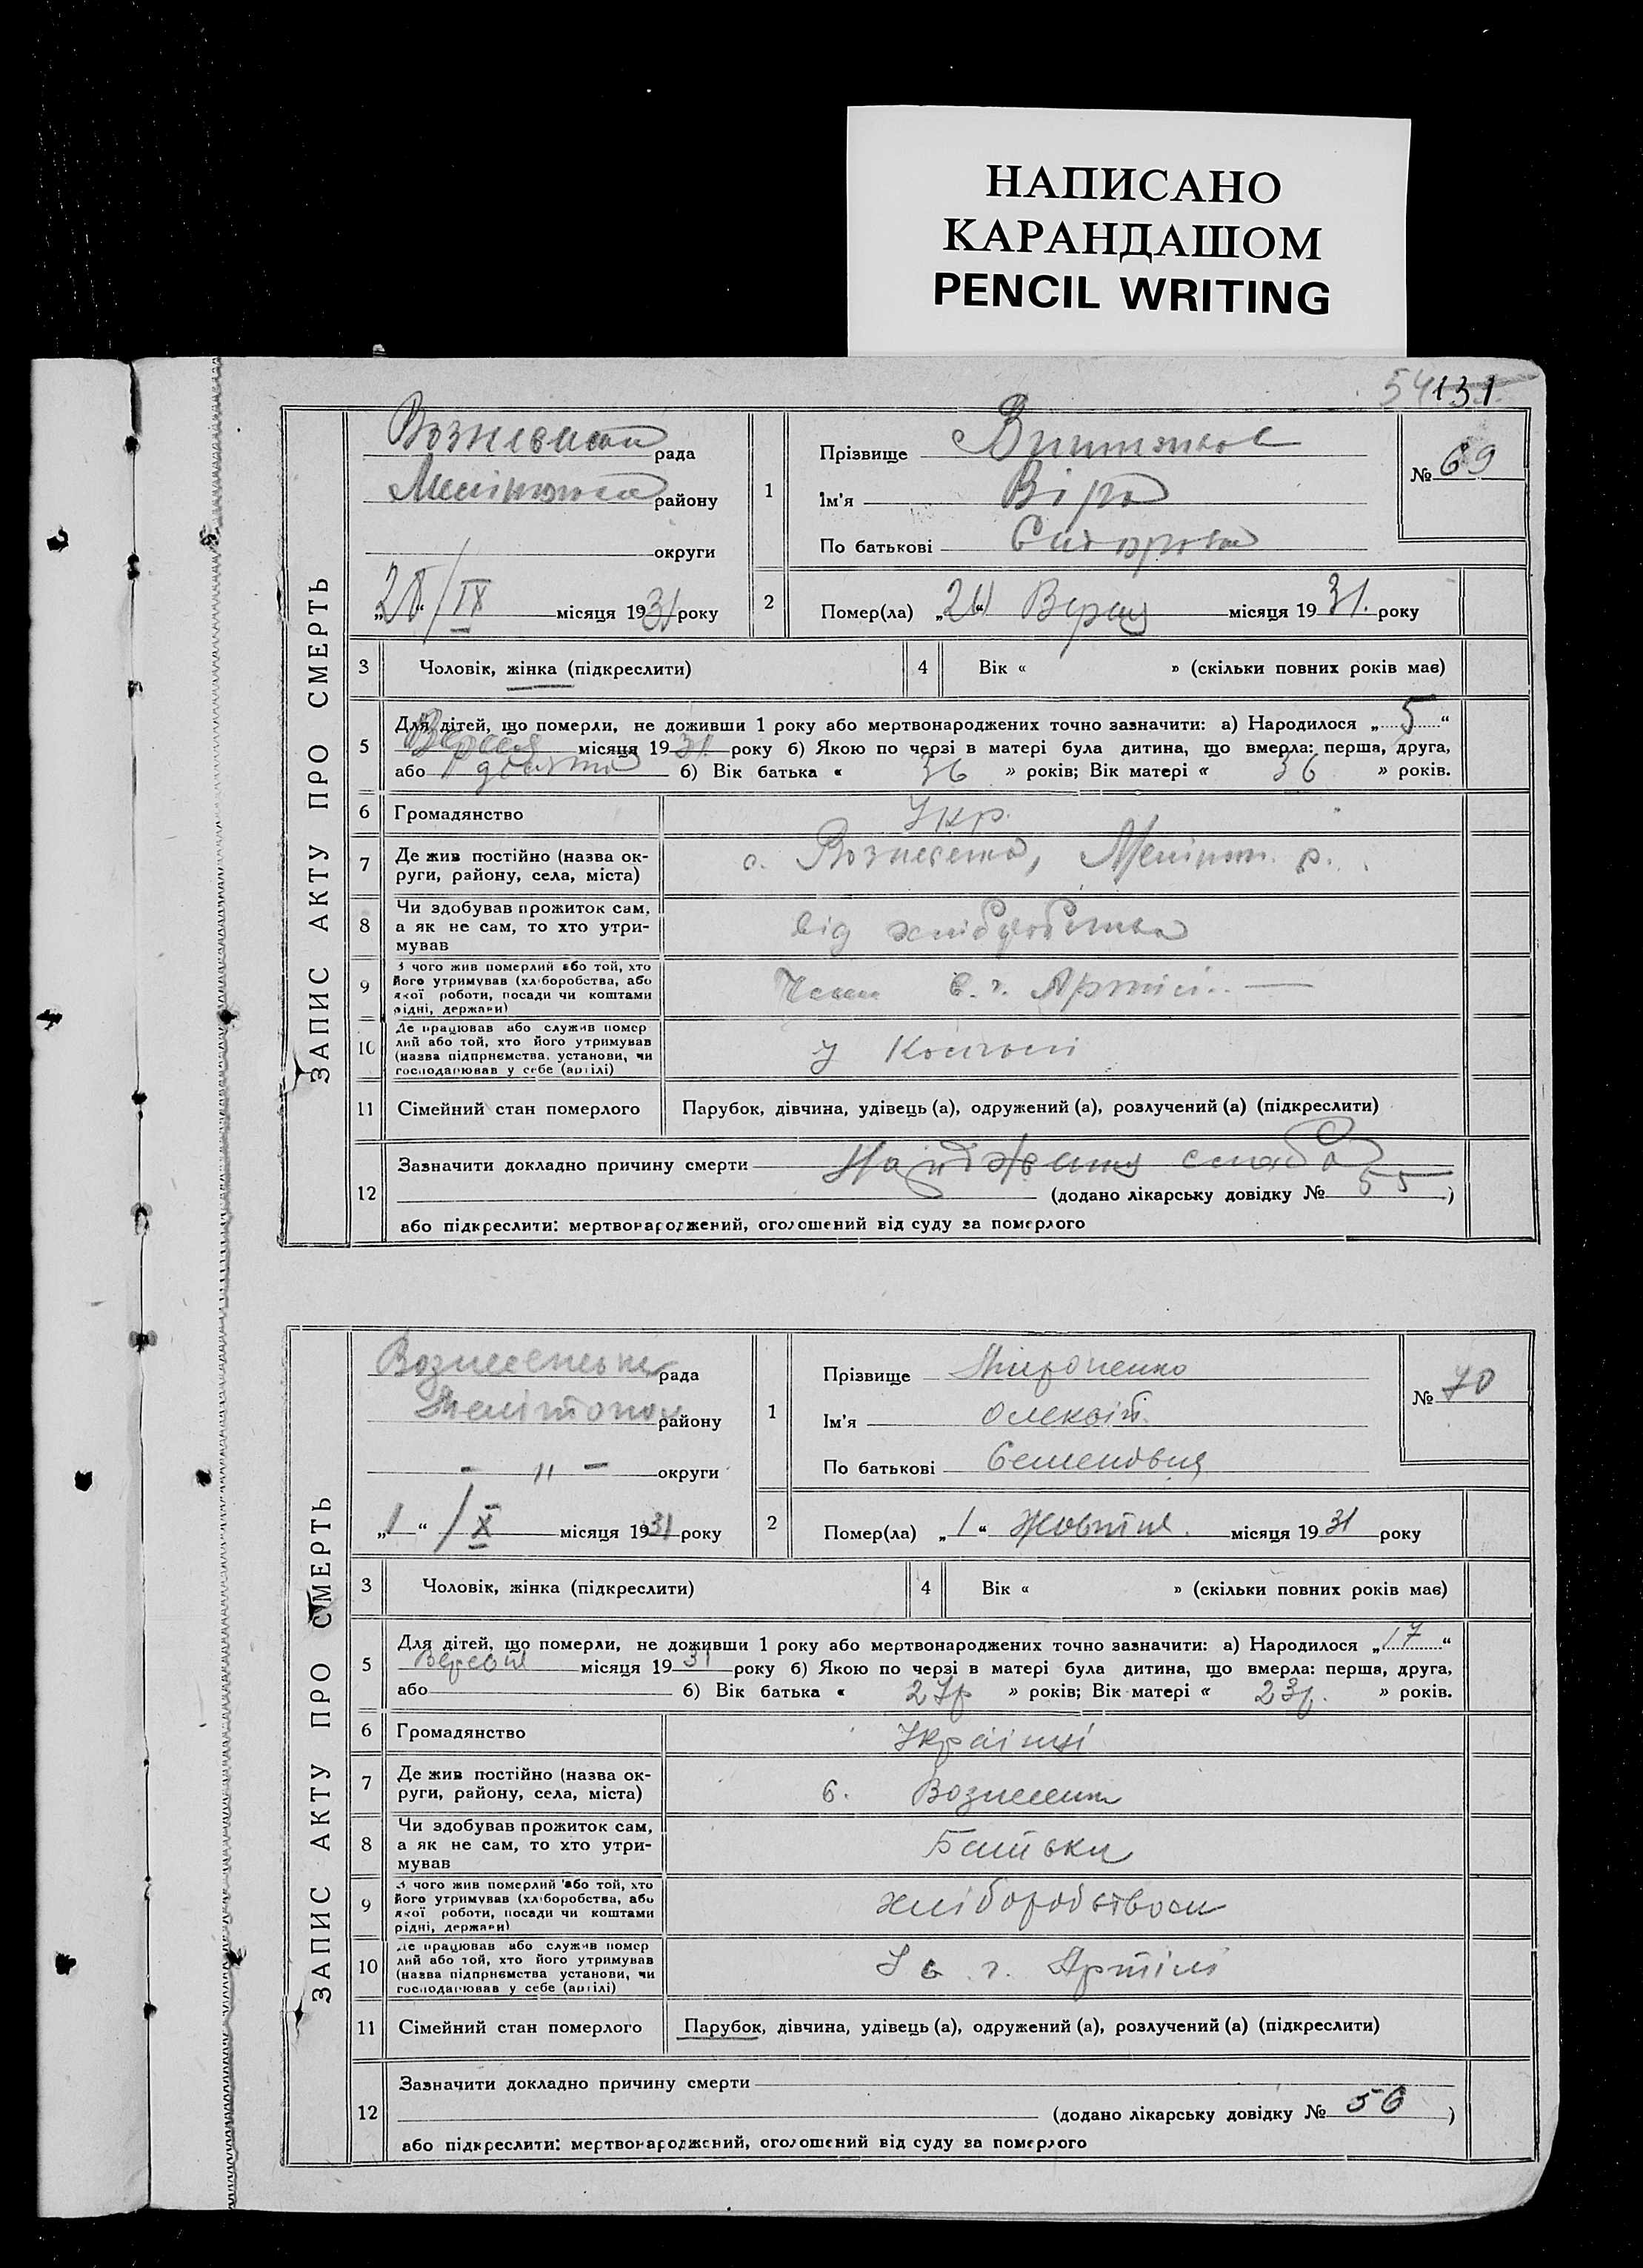 НАПИСАНО
КАРАНДАШОМ
PENCIL WRITING
54 131
ЗАПИС АКТУ ПРО СМЕРТЬ
рада
району
округи
„28“ / IX місяця 1931 року
1
Прізвище
Ім'я Віра
По батькові
№ 69
2
Помер(ла) „24“ місяця 1931. року
3 Чоловік, жінка (підкреслити)
4 Вік « » (скільки повних років має)
5 Для дітей, що померли, не доживши 1 року або мертвонароджених точно зазначити: а) Народилося „5“
Вересня місяця 1931 року б) Якою по черзі в матері була дитина, що вмерла: перша, друга,
або б) Вік батька « 36 » років; Вік матері « 36 » років.
6 Громадянство Укр.
7 Де жив постійно (назва ок-
руги, району, села, міста)
с. Вознесенка, Меліт. р.
8 Чи здобував прожиток сам,
а як не сам, то хто утри-
мував
від
9 З чого жив померлий або той, хто
його утримував (хліборобства, або
якої роботи, посади чи коштами
рідні, держави)
с. г. Артілі
10 Де працював або служив помер
лий або той, хто його утримував
(назва підприємства, установи, чи
господарював у себе (артілі)
У
11 Сімейний стан померлого Парубок, дівчина, удівець (а), одружений (а), розлучений (а) (підкреслити)
12 Зазначити докладно причину смерти
(додано лікарську довідку № 55)
або підкреслити: мертвонароджений, оголошений від суду за померлого
ЗАПИС АКТУ ПРО СМЕРТЬ
Вознесенська рада
Мелітопол району
- " - округи
„1“ / X місяця 1931 року
1
Прізвище Мироненко
Ім'я Олексій
По батькові Семенович
№ 70
2
Помер(ла) „1“ Жовтня місяця 1931 року
3 Чоловік, жінка (підкреслити)
4 Вік « » (скільки повних років має)
5 Для дітей, що померли, не доживши 1 року або мертвонароджених точно зазначити: а) Народилося „17“
Вересня місяця 1931 року б) Якою по черзі в матері була дитина, що вмерла: перша, друга,
або б) Вік батька « 27р » років; Вік матері « 23р. » років.
6 Громадянство Українці
7 Де жив постійно (назва ок-
руги, району, села, міста)
с. Вознесенка
8 Чи здобував прожиток сам,
а як не сам, то хто утри-
мував
Батьки
9 З чого жив померлий або той, хто
його утримував (хліборобства, або
якої роботи, посади чи коштами
рідні, держави)
хліборобством
10 Де працював або служив помер
лий або той, хто його утримував
(назва підприємства установи, чи
господарював у себе (артілі)
У с. г. Артілі
11 Сімейний стан померлого Парубок, дівчина, удівець (а), одружений (а), розлучений (а) (підкреслити)
12 Зазначити докладно причину смерти
(додано лікарську довідку № 56)
або підкреслити: мертвонароджений, оголошений від суду за померлого